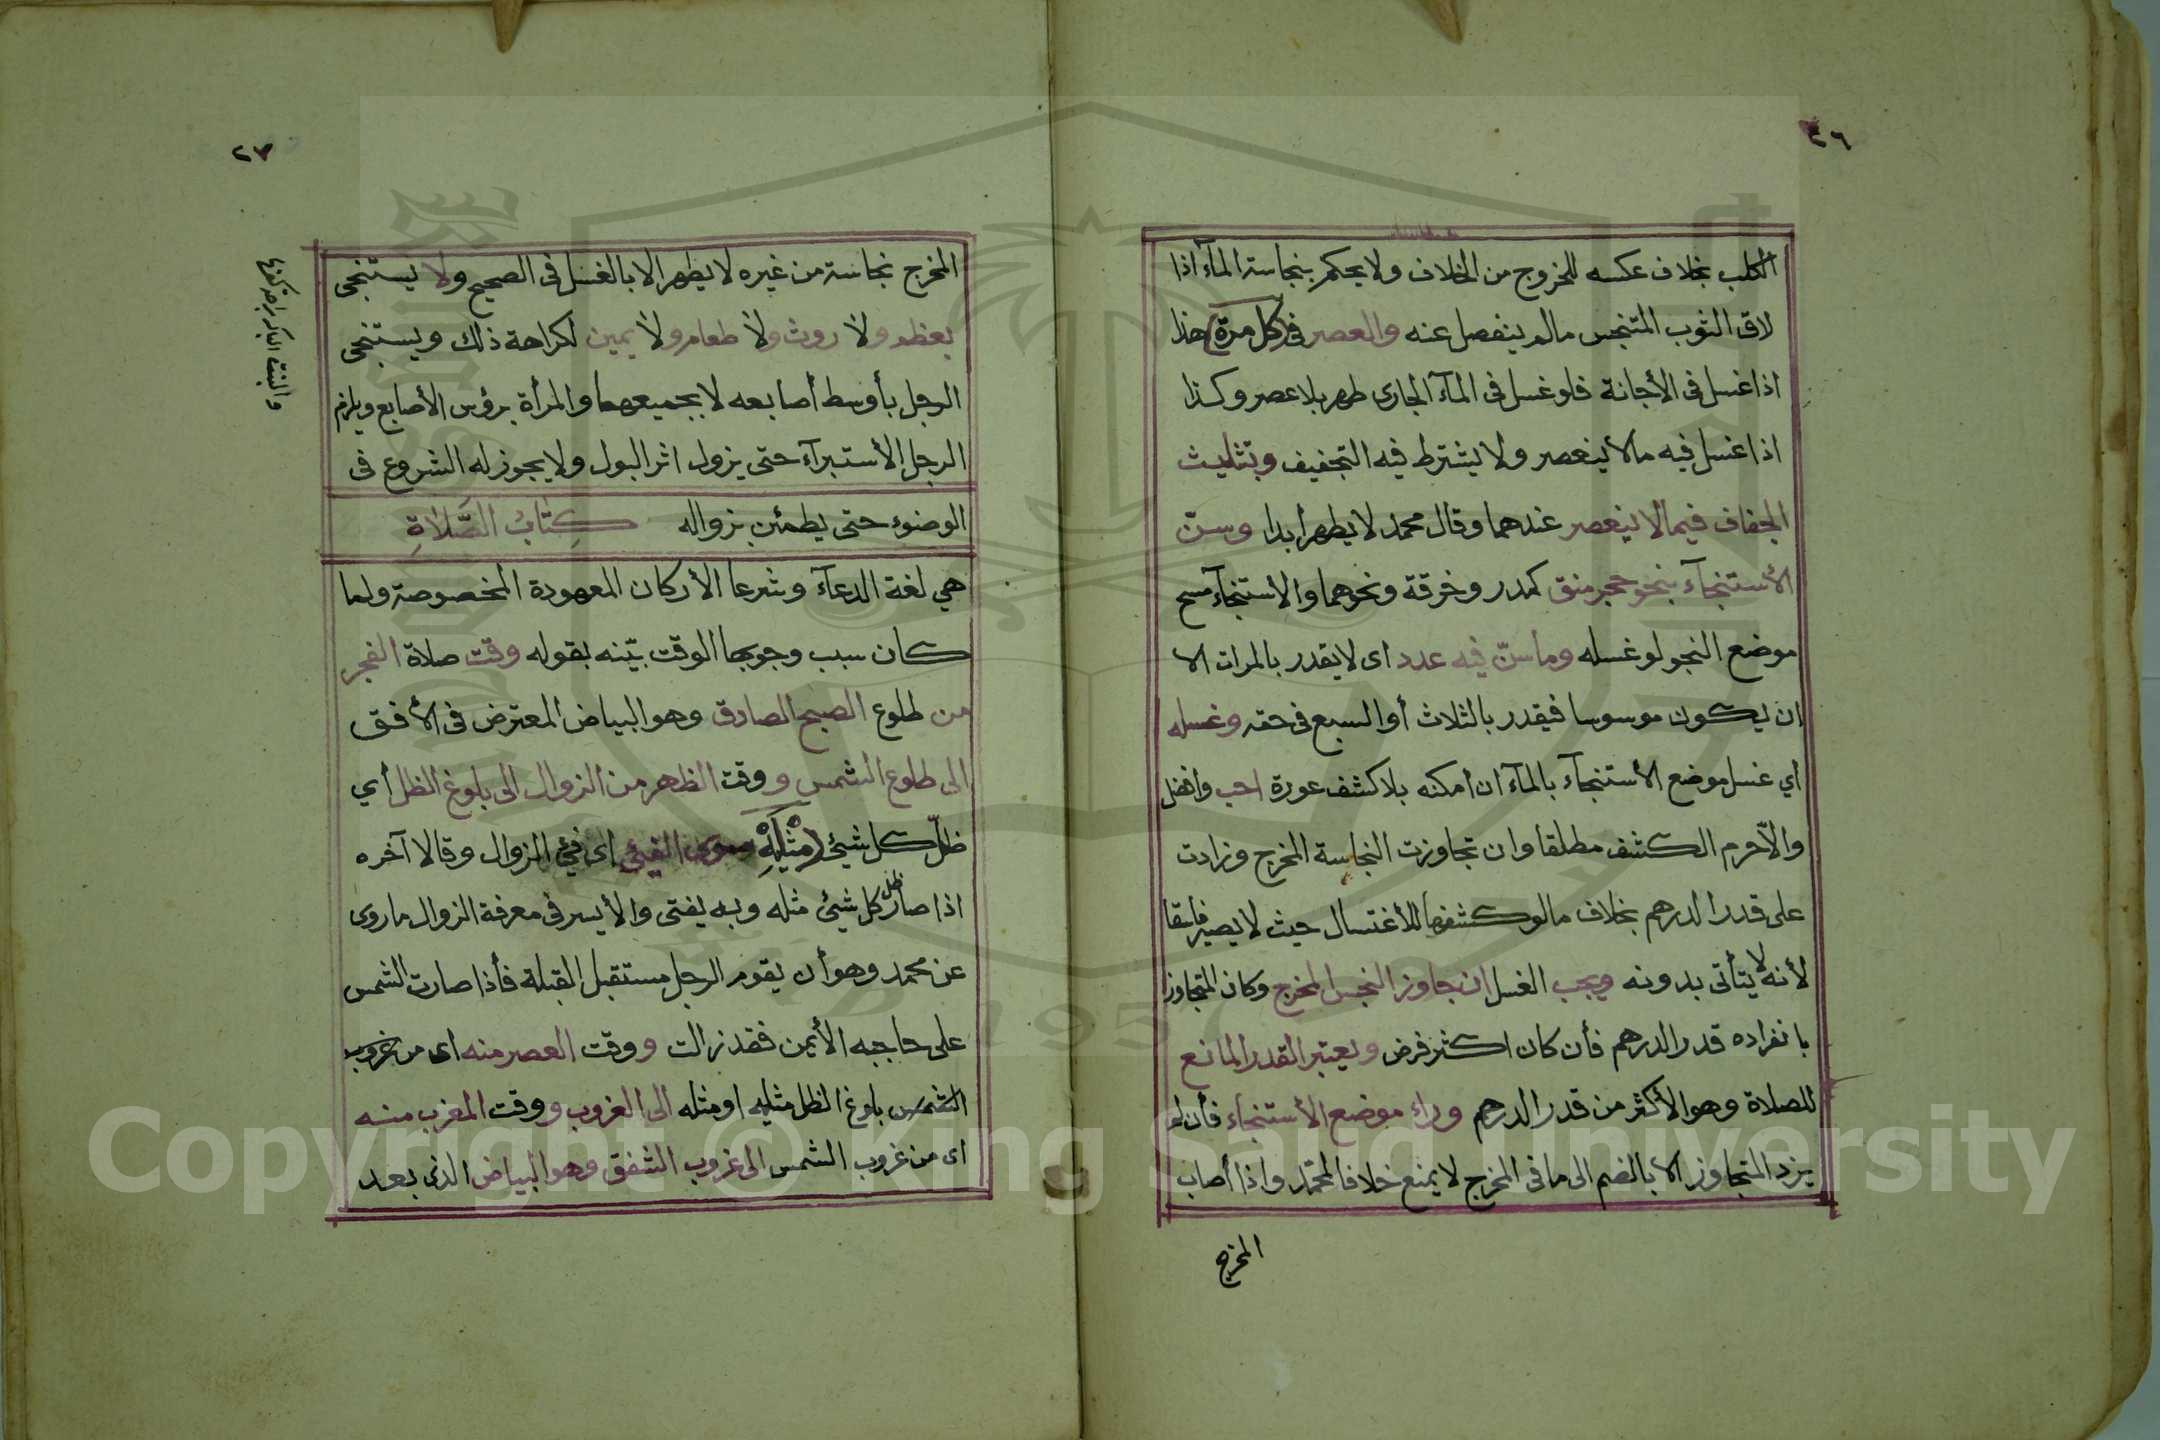 ٢٦
الكلب بخلاف عكسه للخروج من الخلاف ولا يحكم بنجاسة المآء اذا
لاق الثوب المتنجس مالم ينفصل عنه والعصر فى (كل مرة) هذا
اذا غسل فى الأجانة فلو غسل فى المآء الجارى طهر بلا عصر وكذا
اذا غسل فيه مالا ينعصر ولا يشترط فيه التجفيف وبتثليث
الجفاف فيما لا ينعصر عندهما وقال محمد لا يطهر أبدا وسنّ
الأستنجآء بنحو حجر منق كمدر وخرقة ونحوهما والأستنجآء مسح
موضع النجو لو غسله وما سنّ فيه عدد اى لا يقدر بالمرات الا
ان يكون موسوسا فيقدر بالثلاث أو السبع فى حقه وغسله
أي غسل موضع الأستنجآء بالمآء ان أمكنه بلا كشف عورة احب وأفضل
والاّ حرم الكشف مطلقا وان تجاوزت النجاسة المخرج وزادت
على قدر الدرهم بخلاف مالو كشفها للأغتسال حيث لا يصير فاسقا
لأنه لا يتأتى بدونه ويجب الغسل ان جاوز النجس المخرج وكان المتجاوز
بانفراده قدر الدرهم فأن كان اكثر فرض ويعتبر القدر المانع
للصلاة وهو الأكثر من قدر الدرهم وراء موضع الأستنجآء فأن لم
يزد المتجاوز الا بالضم الى ما فى المخرج لا يمنع خلافا لمحمّد واذا أصاب
المخرج
٢٧
المخرج نجاسة من غيره لا يطهر الا بالغسل فى الصحيح ولا يستنجى
بعظم ولا روث ولا طعام ولا يمين لكراهة ذلك ويستنجى
الرجل بأوسط أصابعه لا بجميعهما والمرأة برؤس الأصابع ويلزم
الرجل الأستبرآء حتى يزول اثر البول ولا يجوز له الشروع فى
الوضوء حتى يطمئن بزواله كِتَابُ الصَّلَاةِ
هي لغة الدعآء وشرعا الأركان المعهودة المخصوصة ولما
كان سبب وجوبها الوقت بيّنه بقوله وقت صلاة الفجر
من طلوع الصبح الصادق وهو البياض المعترض فى الأفق
الى طلوع الشمس ووقت الظهر من الزوال الى بلوغ الظل أي
ظلّ كل شيئ (مثْلَيْهِ سوى الفيئ اى فيئ الزوال وقالا آخره
اذا صار ظل كل شيئ مثله وبه يفتى والأيسر فى معرفة الزوال ماروى
عن محمد وهو أن يقوم الرجل مستقبل القبلة فأذا صارت الشمس
على حاجبه الأيمن فقد زالت ووقت العصر منه اى من غروب
الشمس بلوغ الظل مثليه او مثله الى الغروب ووقت المغرب منه
اى من غروب الشمس الى غروب الشفق وهو البياض الذى بعد
Copyright © King Saud University
1957